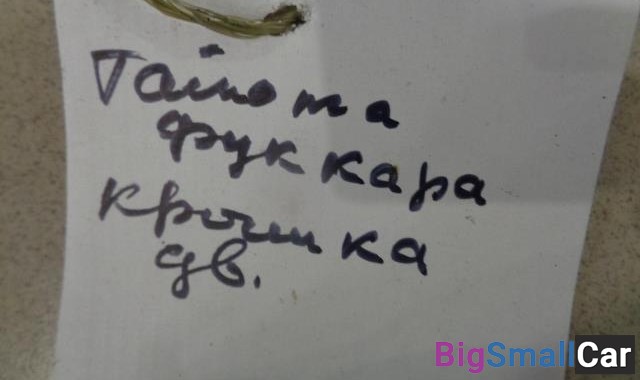 Тайота
фуккара
крышка
дв.
BigSmallCar